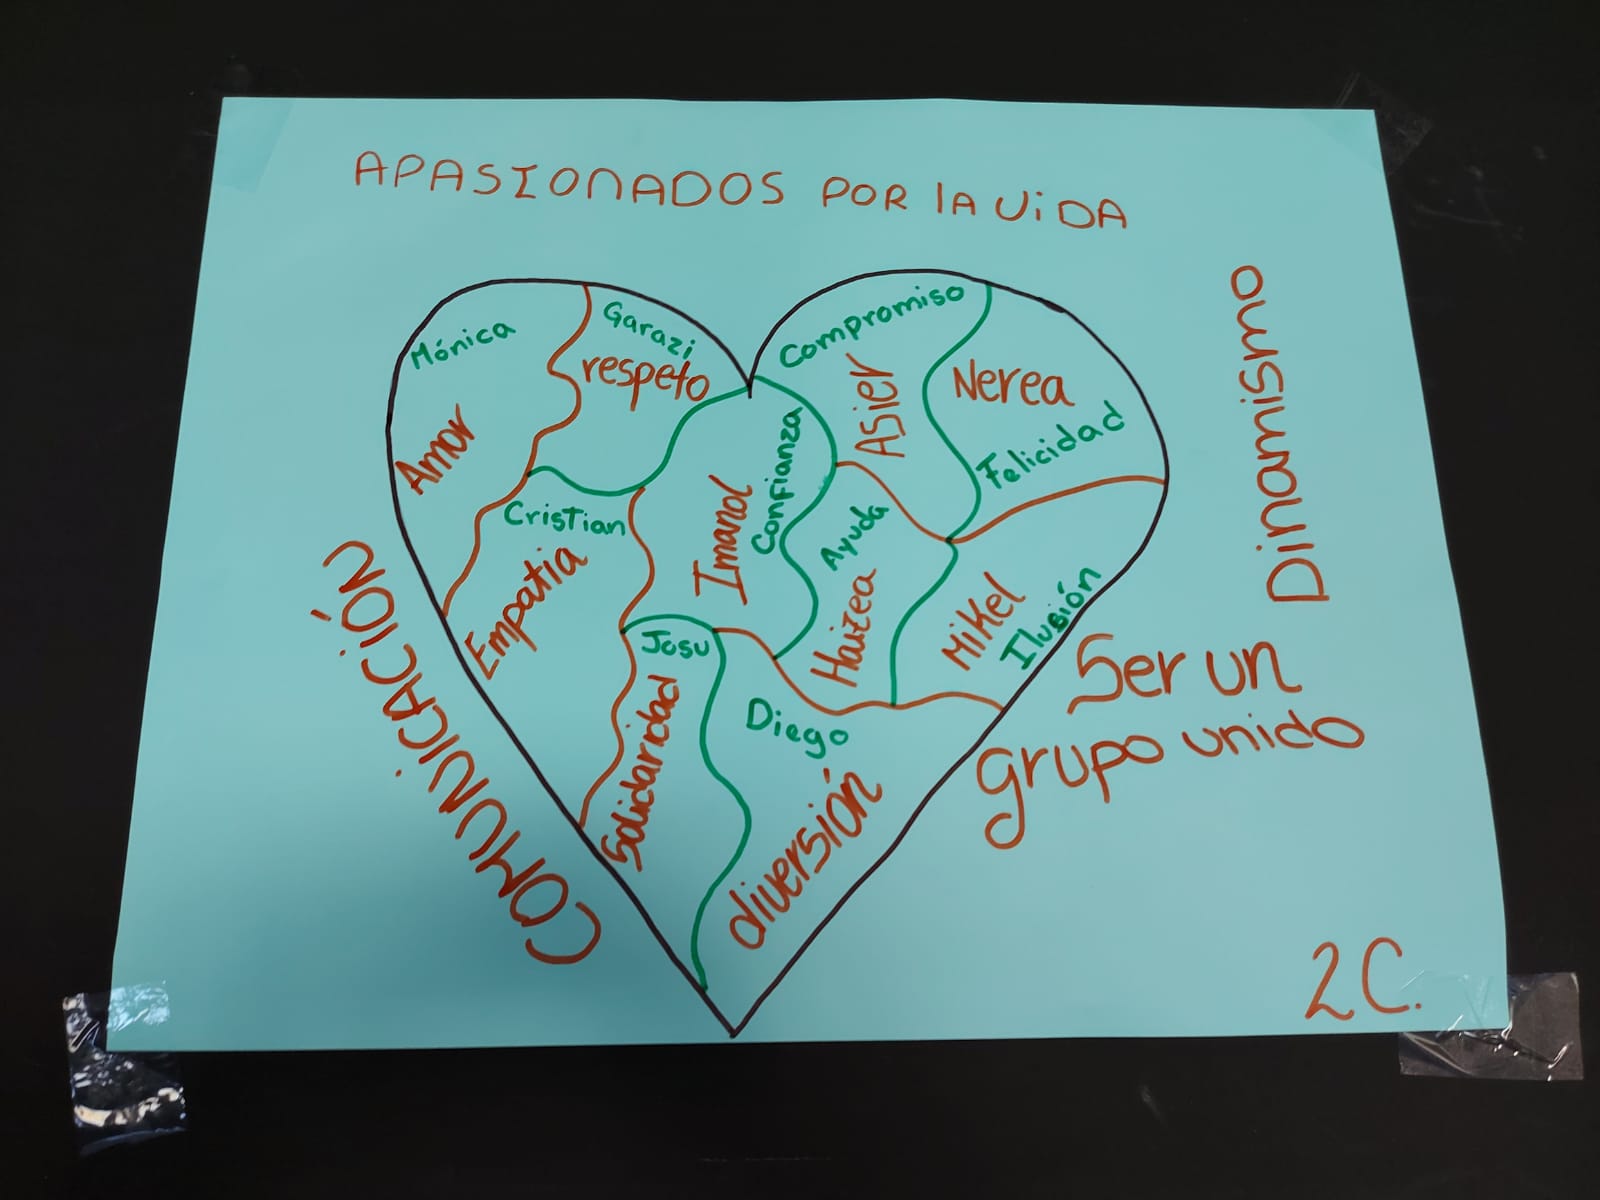 APASIONADOS POR LA VIDA
Mónica
Amor
Garazi
respeto
Compromiso
Asier
Nerea
Felicidad
Cristian
Empatia
Imanol
Confianza
Ayuda
Haizea
Mikel
Ilusión
Josu
Solidaridad
Diego
diversión
COMUNICACIÓN
Dinamismo
Ser un
grupo unido
2C.